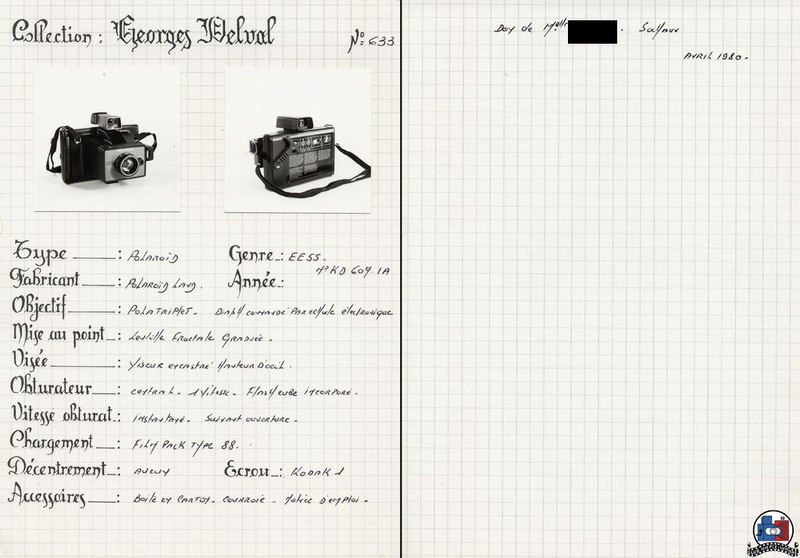 Collection : Georges Delval
Nº 633
Type : Polaroid
Genre : EE55.
nº KD 607 1A
Fabricant : Polaroid Land.
Année :
Objectif : Polatriplet. Diaph commandé par cellule électronique
Mise au point : Lentille Frontale Graduée.
Visée : Viseur encastré Hauteur D'oeil.
Obturateur : central. 1 Vitesse. Flash cube incorporé.
Vitesse obturat. : instantané. Suivant ouverture.
Chargement : Film Pack Type 88.
Décentrement : aucun
Ecrou : Kodak 1
Accessoires : Boite en Carton. Courroie. Notice D'emploi.
Don de Melle
Avril 1980.